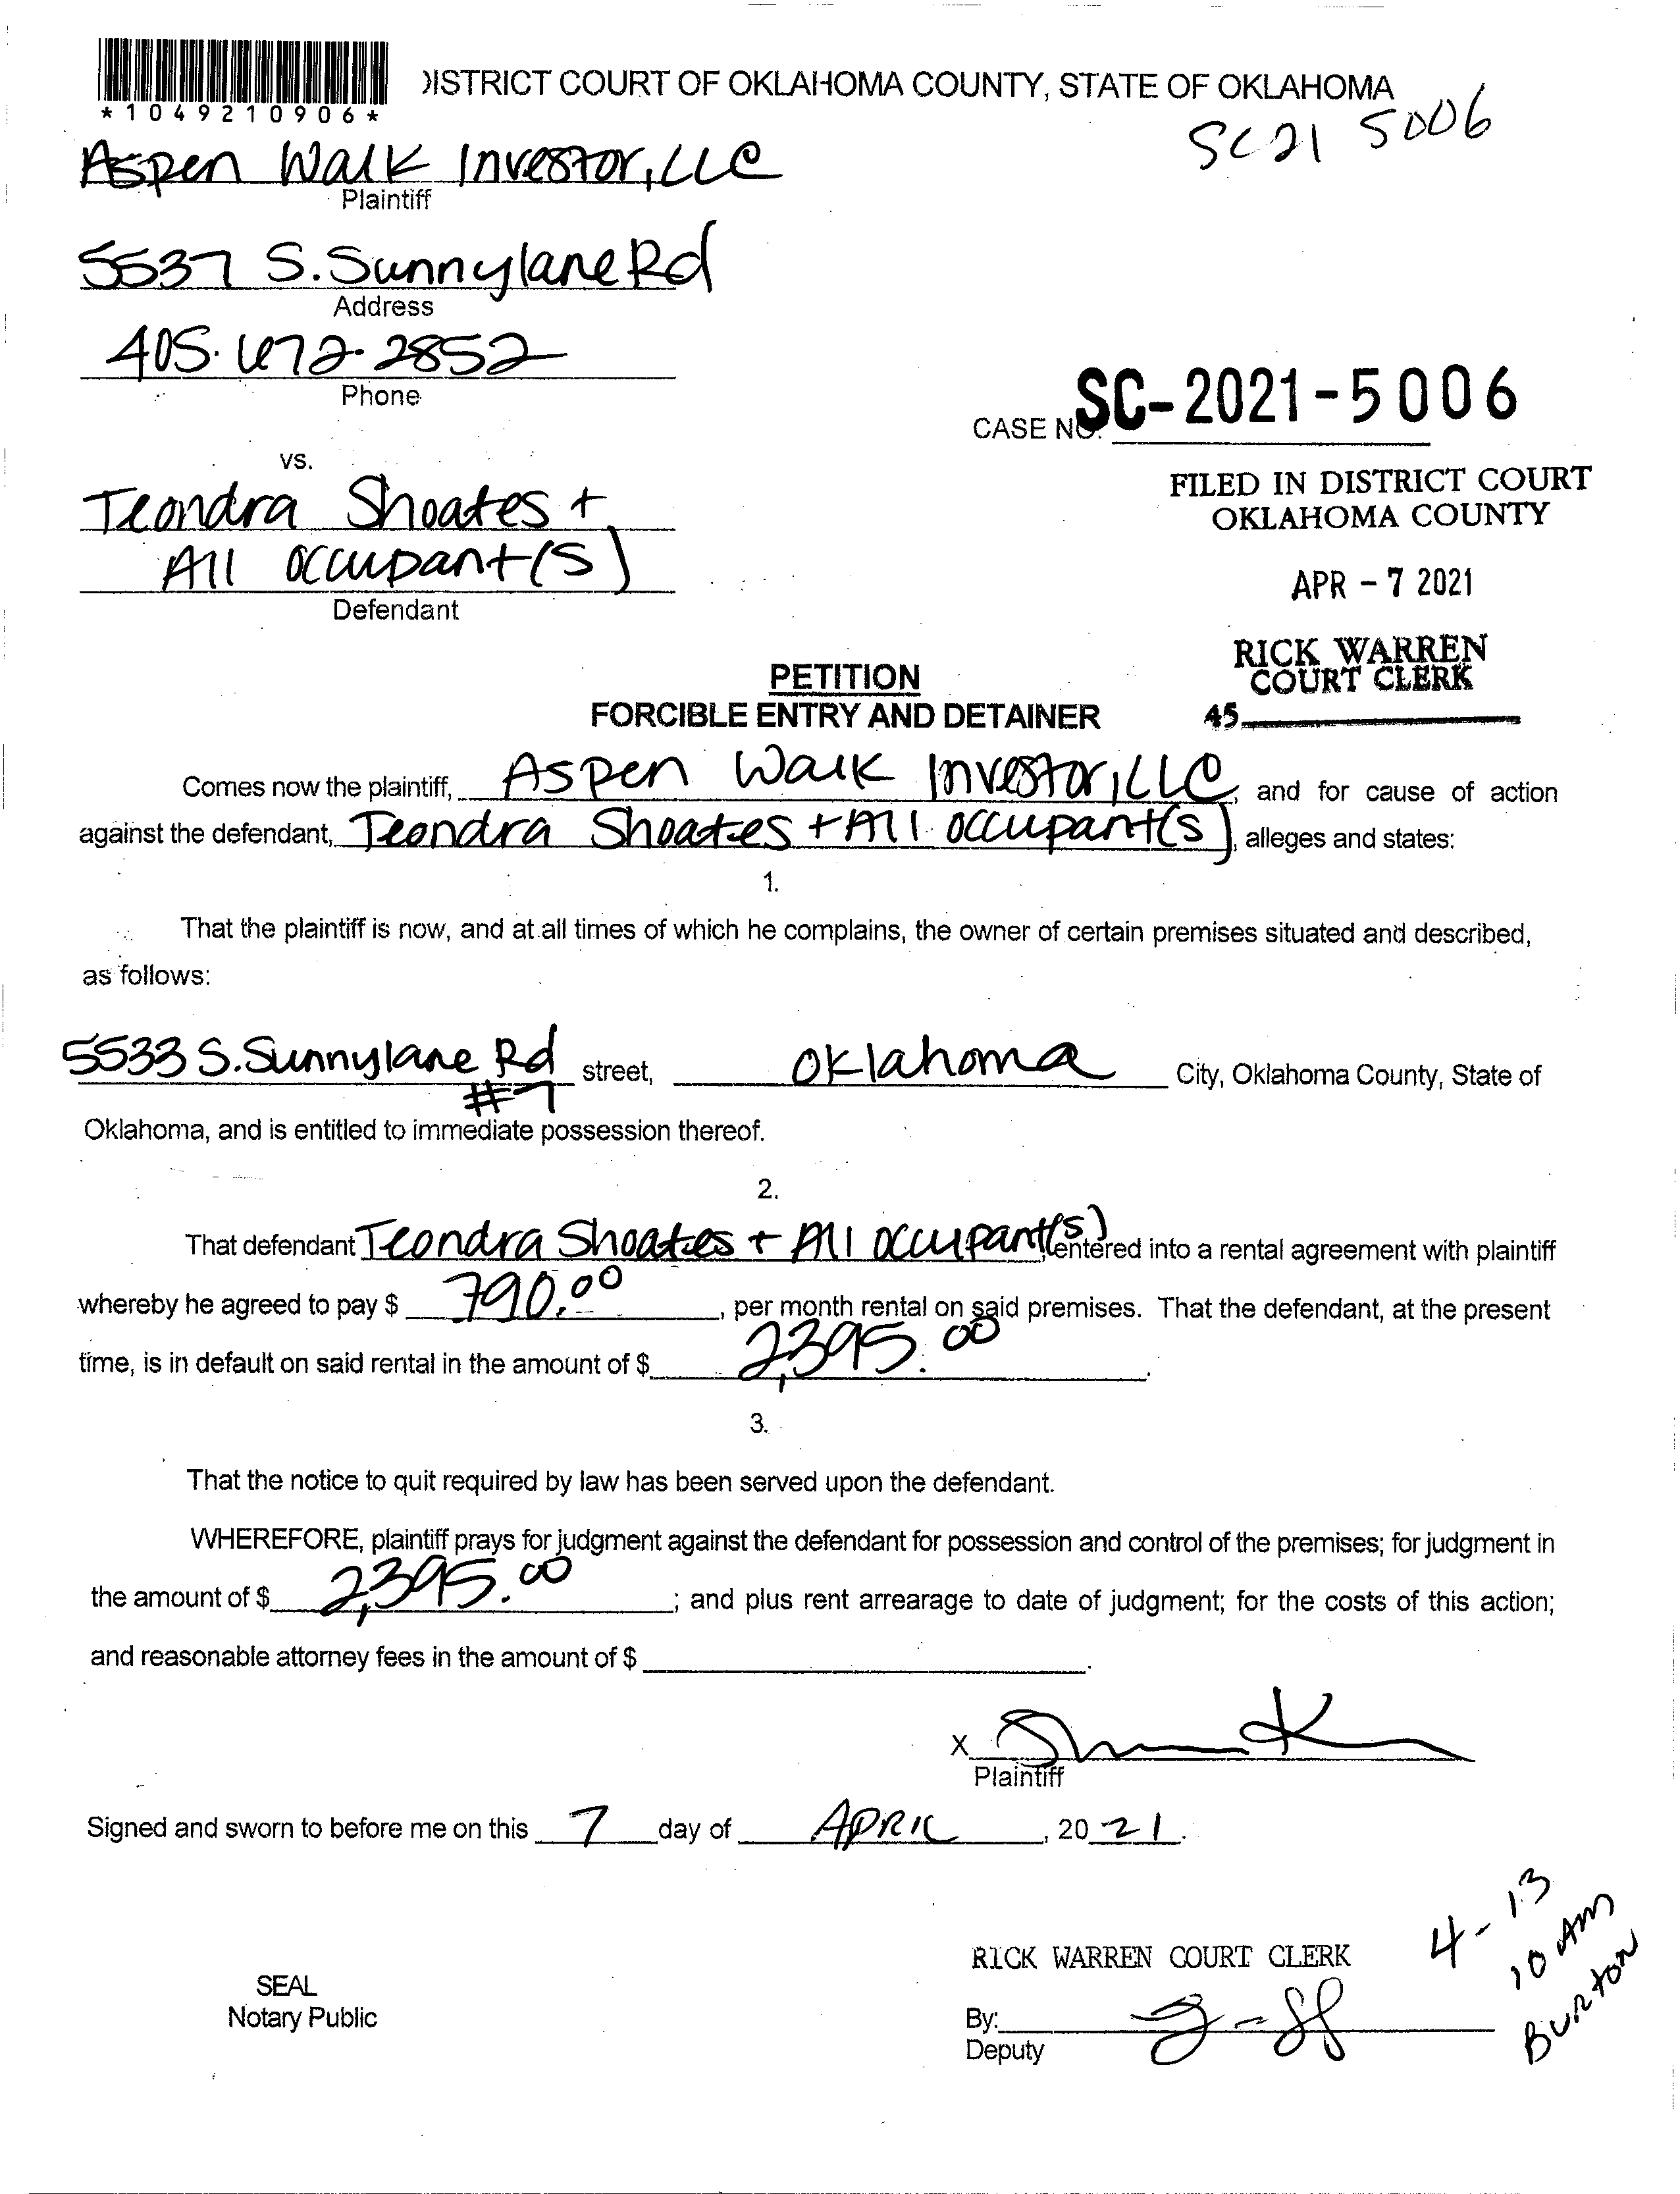 *1049210906*
DISTRICT COURT OF OKLAHOMA COUNTY, STATE OF OKLAHOMA
SC21 5006
Aspen Walk Investor, LLC
Plaintiff
5537 S. Sunnylane Rd
Address
405.672.2852
Phone
CASE NO. SC-2021-5006
vs.
FILED IN DISTRICT COURT
OKLAHOMA COUNTY
Teondra Shoates +
All occupant(s)
Defendant
APR - 7 2021
RICK WARREN
COURT CLERK
45
PETITION
FORCIBLE ENTRY AND DETAINER
Comes now the plaintiff, Aspen Walk Investor, LLC, and for cause of action
against the defendant, Teondra Shoates + All occupant(s), alleges and states:
1.
That the plaintiff is now, and at all times of which he complains, the owner of certain premises situated and described,
as follows:
5533 S. Sunnylane Rd street, Oklahoma City, Oklahoma County, State of
#7
Oklahoma, and is entitled to immediate possession thereof.
2.
That defendant Teondra Shoates + All occupant(s), entered into a rental agreement with plaintiff
whereby he agreed to pay $ 790.00, per month rental on said premises. That the defendant, at the present
time, is in default on said rental in the amount of $ 2,395.00.
3.
That the notice to quit required by law has been served upon the defendant.
WHEREFORE, plaintiff prays for judgment against the defendant for possession and control of the premises; for judgment in
the amount of $ 2,395.00; and plus rent arrearage to date of judgment; for the costs of this action;
and reasonable attorney fees in the amount of $ .
X
Plaintiff
Signed and sworn to before me on this 7 day of APRIL, 2021.
4-13
10 AM
Burton
RICK WARREN COURT CLERK
SEAL
Notary Public
By:
Deputy